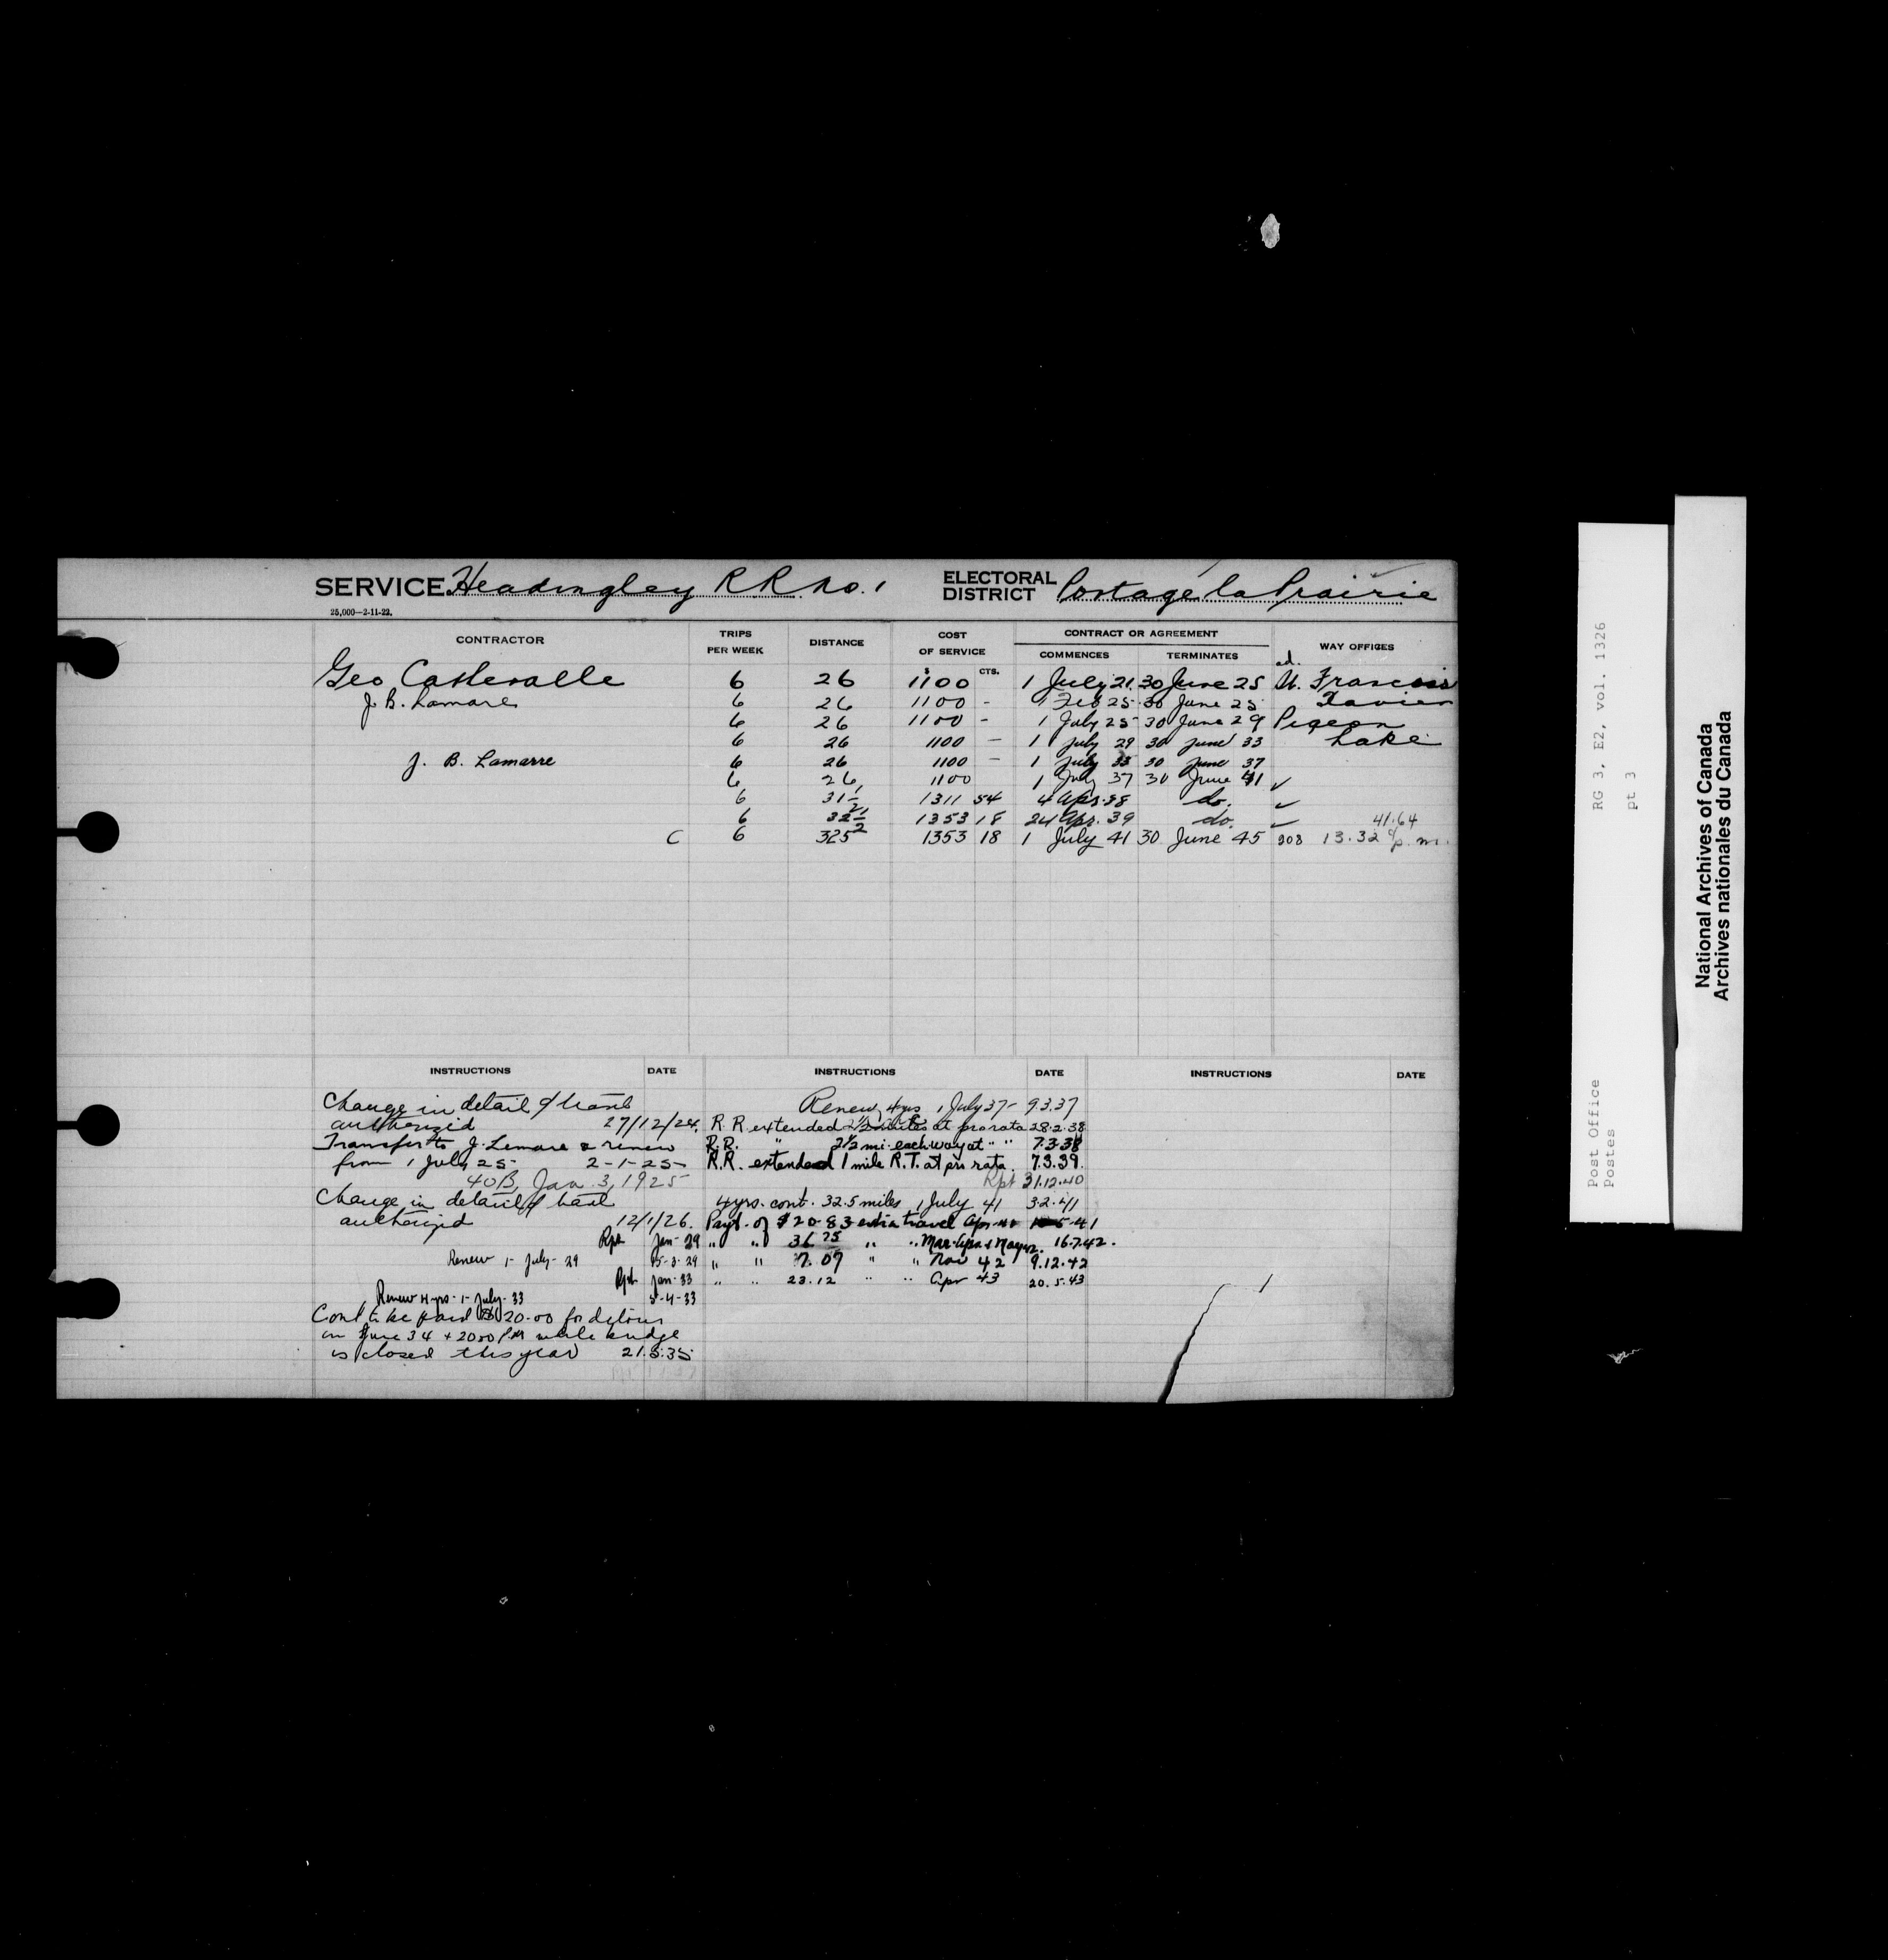 SERVICE Headingley R R No. 1 ELECTORAL DISTRICT Portage la Prairie
25,000—2-11-22.
CONTRACTOR TRIPS PER WEEK DISTANCE COST OF SERVICE CONTRACT OR AGREEMENT WAY OFFICES
$ CTS. COMMENCES TERMINATES
Geo 6 26 1100 1 July 21 30 June 25 St. Francois
J. B. Lamare 6 26 1100 - 1 Feb 25 30 June 25 Xavier
6 26 1100 - 1 July 25 30 June 29 Pigeon
6 26 1100 — 1 July 29 30 June 33 Lake
J. B. Lamarre 6 26 1100 — 1 July 33 30 June 37
6 26 1100 1 July 37 30 June 41 ✓
6 31½ 1311 54 4 Apr. 38 do. ✓
6 32½ 1353 18 24 Apr. 39 do. ✓ 41.64
C 6 325 1353 18 1 July 41 30 June 45 308 13.32 p.m.
INSTRUCTIONS DATE INSTRUCTIONS DATE INSTRUCTIONS DATE
Change in detail of travel
authorized 27/12/24.
Transfer to J. Lemare & renew
from 1 July 25 2-1-25
40B, Jan. 3, 1925
Change in detail of travel
authorized 12/1/26.
Rpt Jan-29
Renew 1- July-29 15-3-29
Rpt. Jan-33
Renew 4 yrs-1-July-33 5-4-33
Cont to be paid $20.00 for detour
in June 34 + 20.00 while bridge
is closed this year 21.5.35
Renew 4 yrs 1 July 37 - 9.3.37
R.R. extended 2½ miles at prorata 28.2.38
R.R. " 2½ mi. each way at " " 7.3.38
R.R. extended 1 mile R.T. at pro rata. 7.3.39.
Rpt 31.12.40
4 yrs. cont. 32.5 miles 1 July 41 3.2.41
Payt. of $20.83 extra travel Apr. 5.41
" " 36.75 " " Mar. Apr. & May 42. 16.7.42.
" " 7.07 " " Nov 42 9.12.42
" " 23.12 " " Apr 43 20.5.43
Post Office RG 3, E2, vol. 1326
Postes pt 3
National Archives of Canada
Archives nationales du Canada